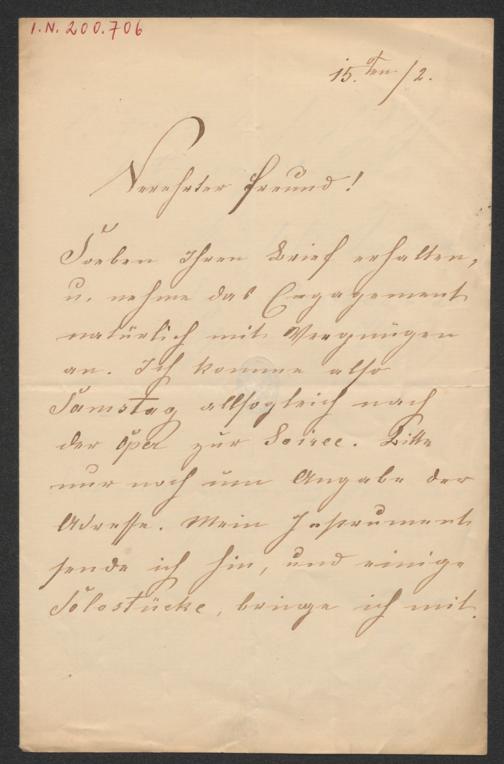 I.N. 200.706
15. ten/2.
Verehrter Freund!
Soeben Ihren Brief erhalten,
u. nehme das Engagement
natürlich mit Vergnügen
an. Ich komme also
Samstag allsogleich nach
der Oper zur Soiree. Bitte
nur noch um Angabe der
Adresse. Mein Instrument
sende ich hin, und einige
Solostücke, bringe ich mit.